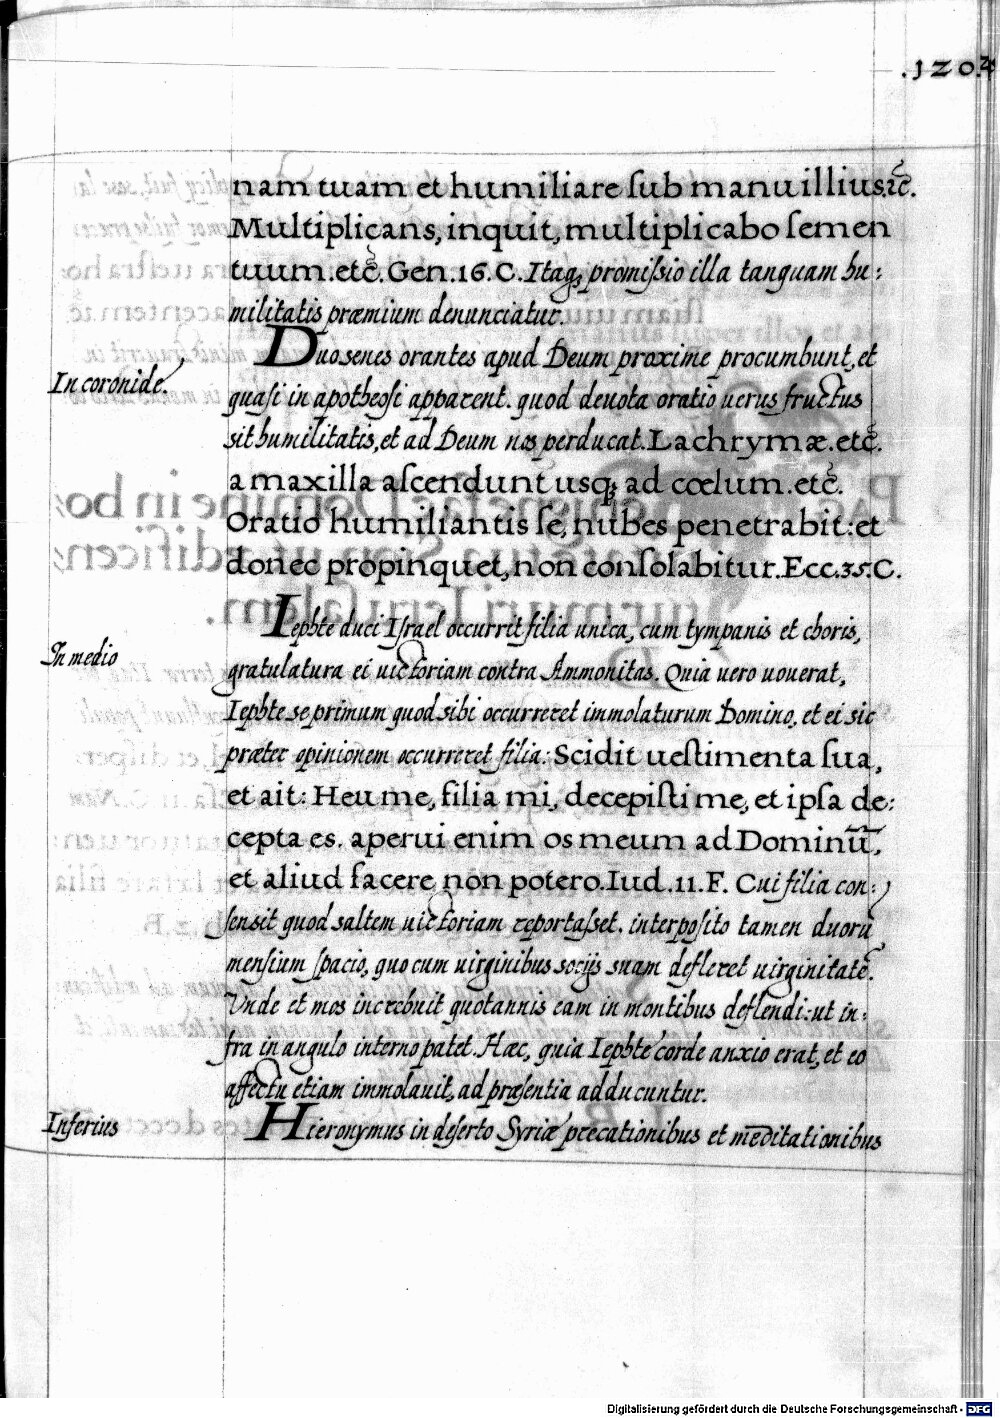 .120.
nam tuam et humiliare ſub manu illius.etc̃.
Multiplicans, inquit, multiplicabo ſemen
tuum.etc̃.Gen.16.C. Itaq; promiſsio illa tanquam hu:
militatis præmium denunciatur.
Duo senes orantes apud Deum proxime procumbunt, et
In coronide.
quaſi in apotheoſi apparent. quod deuota oratio uerus fructus
sit humilitatis, et ad Deum nos perducat. Lachrymæ.etc̃.
a maxilla aſcendunt usq; ad cœlum.etc̃.
Oratio humiliantis ſe, nubes penetrabit: et
donec propinquet, non conſolabitur. Ecc.35.C.
Iephte duci Iſrael occurrit filia unica, cum tympanis et choris,
In medio
gratulatura ei uictoriam contra Ammonitas. Quia uero uouerat,
Iephte se primum quod sibi occurreret immolaturum Domino, et ei sic
præter opinionem occurreret filia: Scidit ueſtimenta ſua,
et ait: Heu me, filia mi, decepiſti me, et ipſa de:
cepta es. aperui enim os meum ad Dominũ,
et aliud facere non potero. Iud.11.F. Cui filia con:
ſensit quod saltem uictoriam reportaſset. interpoſito tamen duorũ
menſium ſpacio, quo cum uirginibus socijs suam defleret uirginitatẽ.
Vnde et mos increbuit quotannis eam in montibus deflendi: ut in:
fra in angulo interno patet. Hæc, quia Iephte corde anxio erat, et eo
affectu etiam immolauit, ad præſentia adducuntur.
Inferius
Hieronymus in deſerto Syriæ precationibus et meditationibus
Digitalisierung gefördert durch die Deutsche Forschungsgemeinschaft - DFG